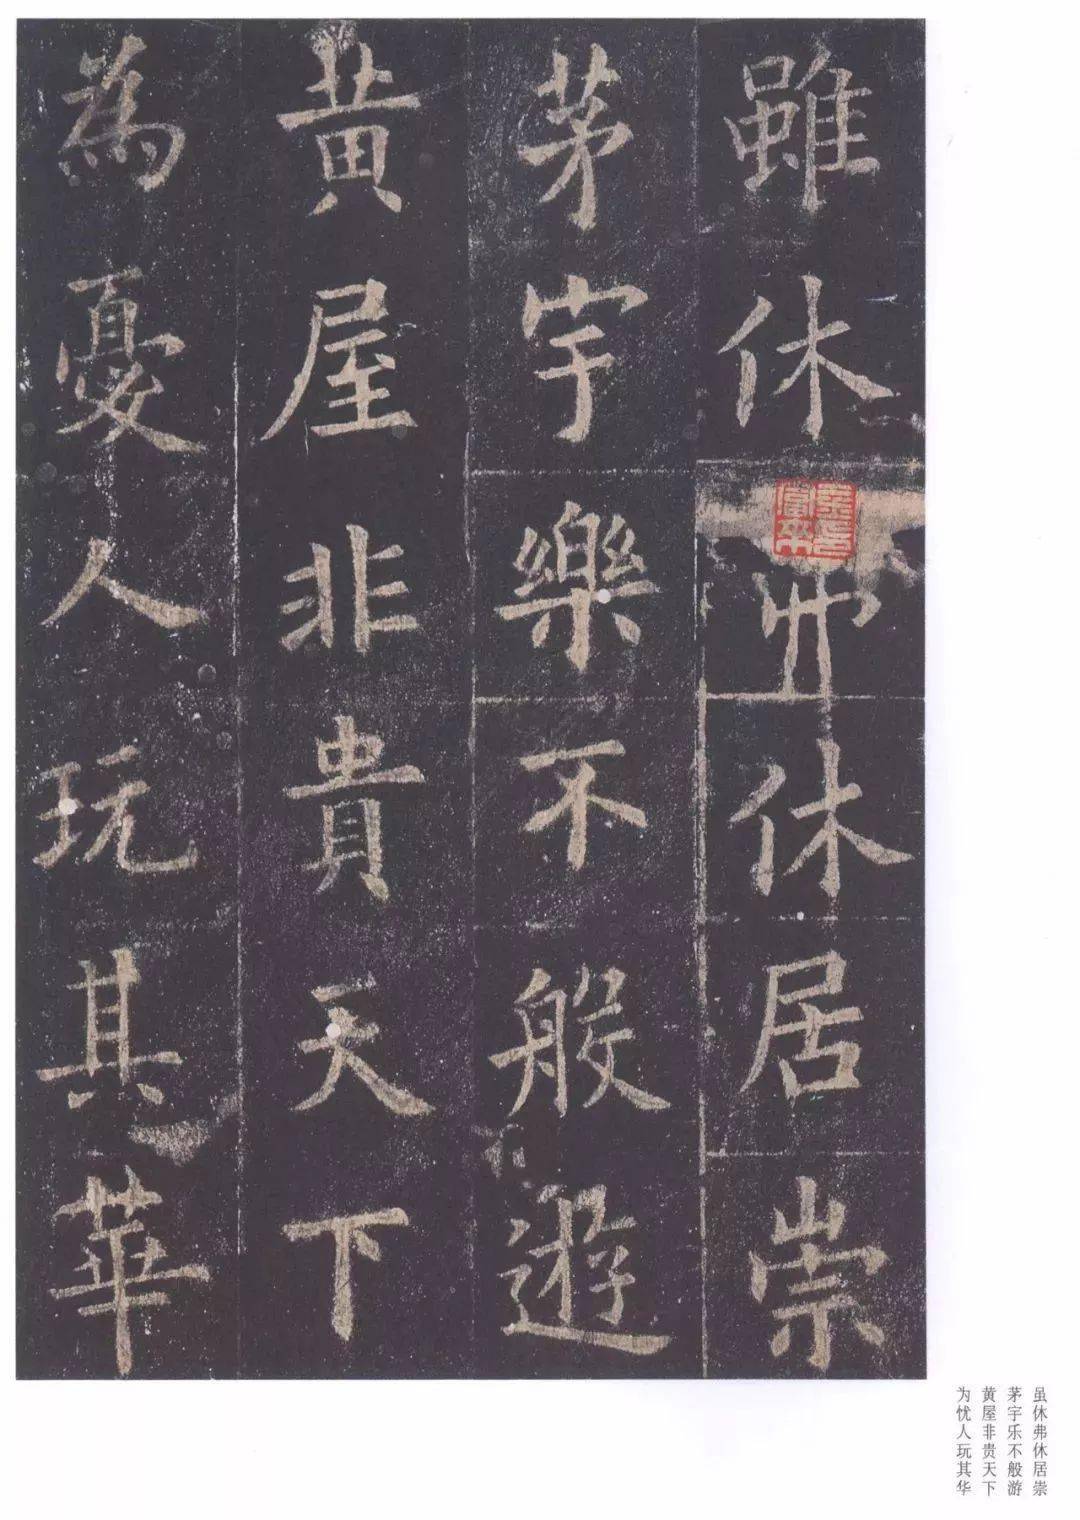 雖休弗休居崇
茅宇樂不般遊
黄屋非貴天下
為憂人玩其華
虽休弗休居崇
茅宇乐不般游
黄屋非贵天下
为忧人玩其华